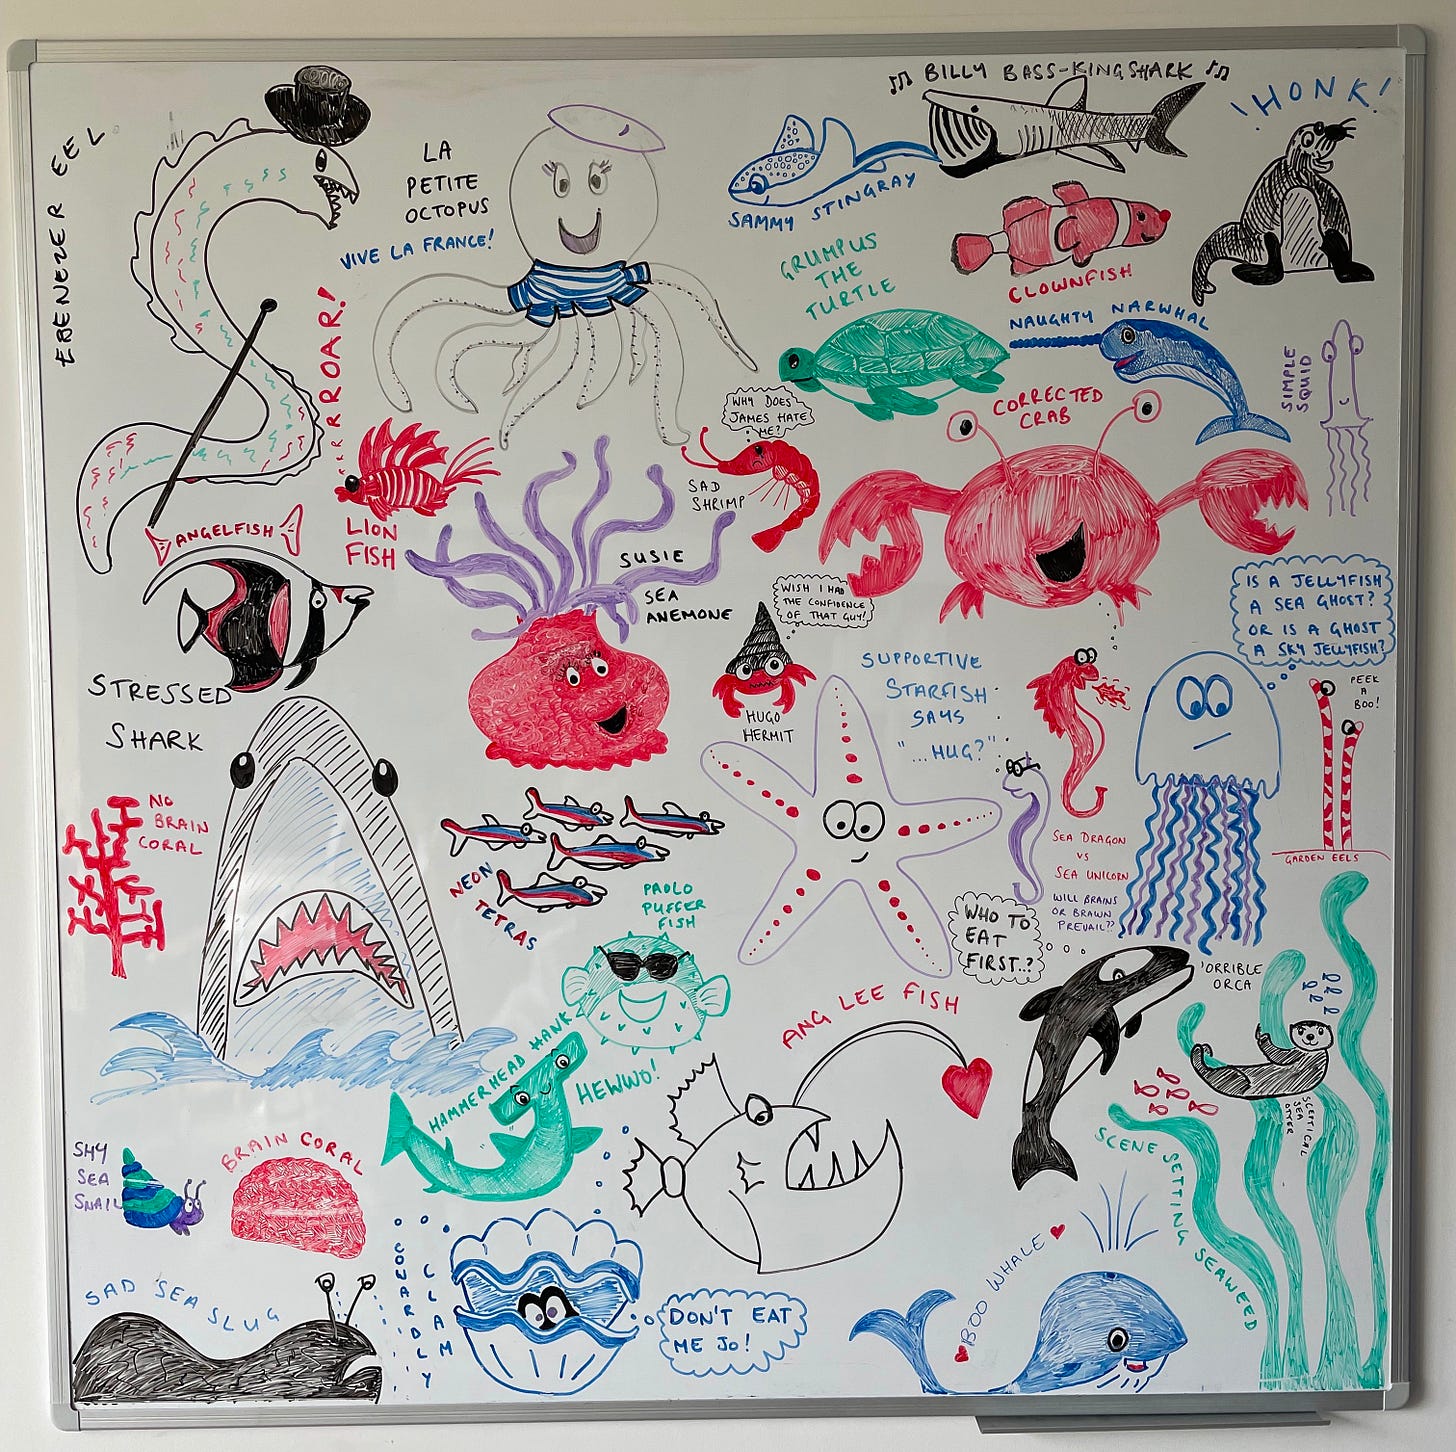 EBENEZER EEL
LA
PETITE
OCTOPUS
VIVE LA FRANCE!
SAMMY STINGRAY
BILLY BASS-KINGSHARK
!HONK!
CLOWNFISH
GRUMPUS
THE
TURTLE
NAUGHTY NARWHAL
SIMPLE
SQUID
RRRROAR!
LION
FISH
WHY DOES
JAMES HATE
ME?
SAD
SHRIMP
CORRECTED
CRAB
ANGELFISH
SUSIE
SEA
ANEMONE
WISH I HAD
THE CONFIDENCE
OF THAT GUY!
HUGO
HERMIT
IS A JELLYFISH
A SEA GHOST?
OR IS A GHOST
A SKY JELLYFISH?
PEEK
A
BOO!
GARDEN EELS
STRESSED
SHARK
SUPPORTIVE
STARFISH
SAYS
"...HUG?"
SEA DRAGON
VS
SEA UNICORN
WILL BRAINS
OR BRAWN
PREVAIL??
NO
BRAIN
CORAL
NEON
TETRAS
PAOLO
PUFFER
FISH
WHO TO
EAT
FIRST..?
'ORRIBLE
ORCA
ANG LEE FISH
HAMMERHEAD HANK
HEWWO!
SCEPTICAL
SEA
OTTER
SCENE SETTING SEAWEED
SHY
SEA
SNAIL
BRAIN CORAL
SAD SEA SLUG
COWARDLY
CLAM
DON'T EAT
ME JO!
BOO WHALE